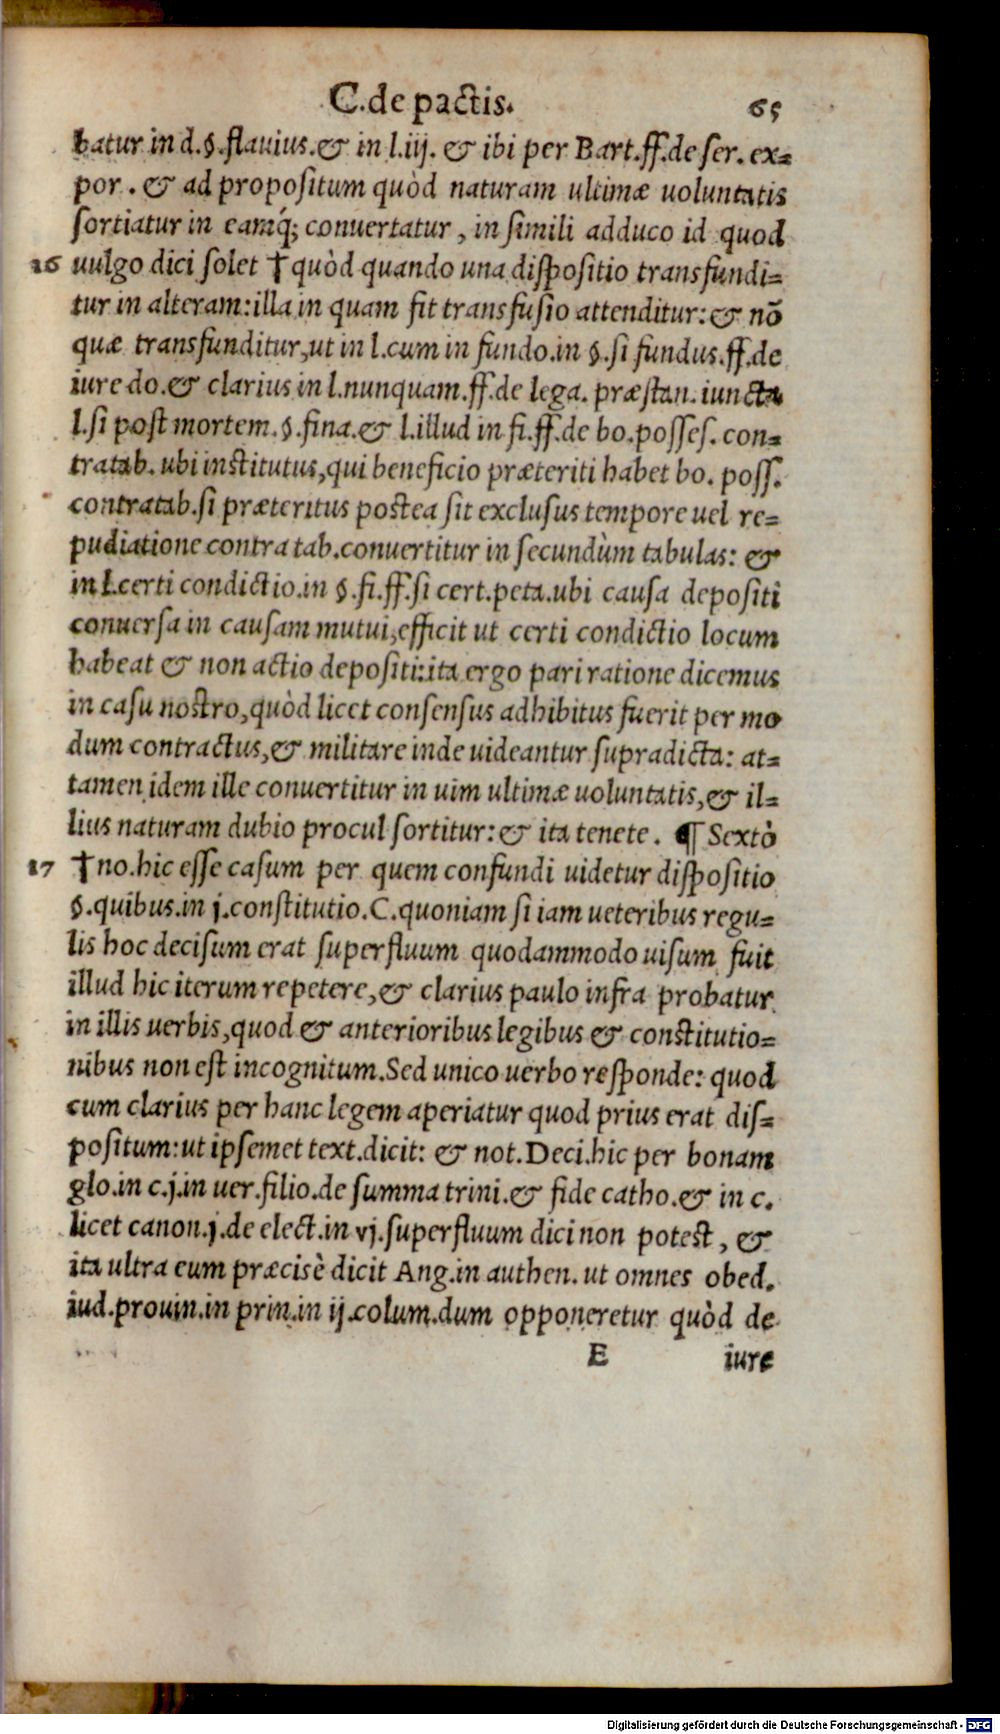 C.de pactis. 65
batur in d.§.flauius.& in l.iij. & ibi per Bart.ff.de ser. ex=
por . & ad propositum quòd naturam ultimæ uoluntatis
sortiatur in eamq́; conuertatur , in simili adduco id quod
16 uulgo dici solet †quòd quando una dispositio transfundi=
tur in alteram:illa in quam fit transfusio attenditur:& nō
quæ transfunditur,ut in l.cum in fundo.in §.si fundus.ff.de
iure do.& clarius in l.nunquam.ff.de lega. præstan. iuncta
l.si post mortem.§.fina.& l.illud in fi.ff.de bo.posses. con=
tratab. ubi institutus,qui beneficio præteriti habet bo. poss.
contratab.si præteritus postea sit exclusus tempore uel re=
pudiatione contra tab.conuertitur in secundùm tabulas: &
in l.certi condictio.in §.fi.ff.si cert.peta.ubi causa depositi
conuersa in causam mutui,efficit ut certi condictio locum
habeat & non actio depositi:ita ergo pari ratione dicemus
in casu nostro,quòd licet consensus adhibitus fuerit per mo
dum contractus,& militare inde uideantur supradicta: at=
tamen idem ille conuertitur in uim ultimæ uoluntatis,& il=
lius naturam dubio procul sortitur:& ita tenete. ¶ Sextò
17 †no.hic esse casum per quem confundi uidetur dispositio
§.quibus.in j.constitutio.C.quoniam si iam ueteribus regu=
lis hoc decisum erat superfluum quodammodo uisum fuit
illud hic iterum repetere,& clarius paulo infra probatur
in illis uerbis,quod & anterioribus legibus & constitutio=
nibus non est incognitum.Sed unico uerbo responde: quod
cum clarius per hanc legem aperiatur quod prius erat dis=
positum:ut ipsemet text.dicit: & not.Deci.hic per bonam
glo.in c.j.in uer.filio.de summa trini.& fide catho.& in c.
licet canon.j.de elect.in vj.superfluum dici non potest , &
ita ultra eum præcisè dicit Ang.in authen. ut omnes obed.
iud.prouin.in prin.in ij.colum.dum opponeretur quòd de
E iure
Digitalisierung gefördert durch die Deutsche Forschungsgemeinschaft - DFG